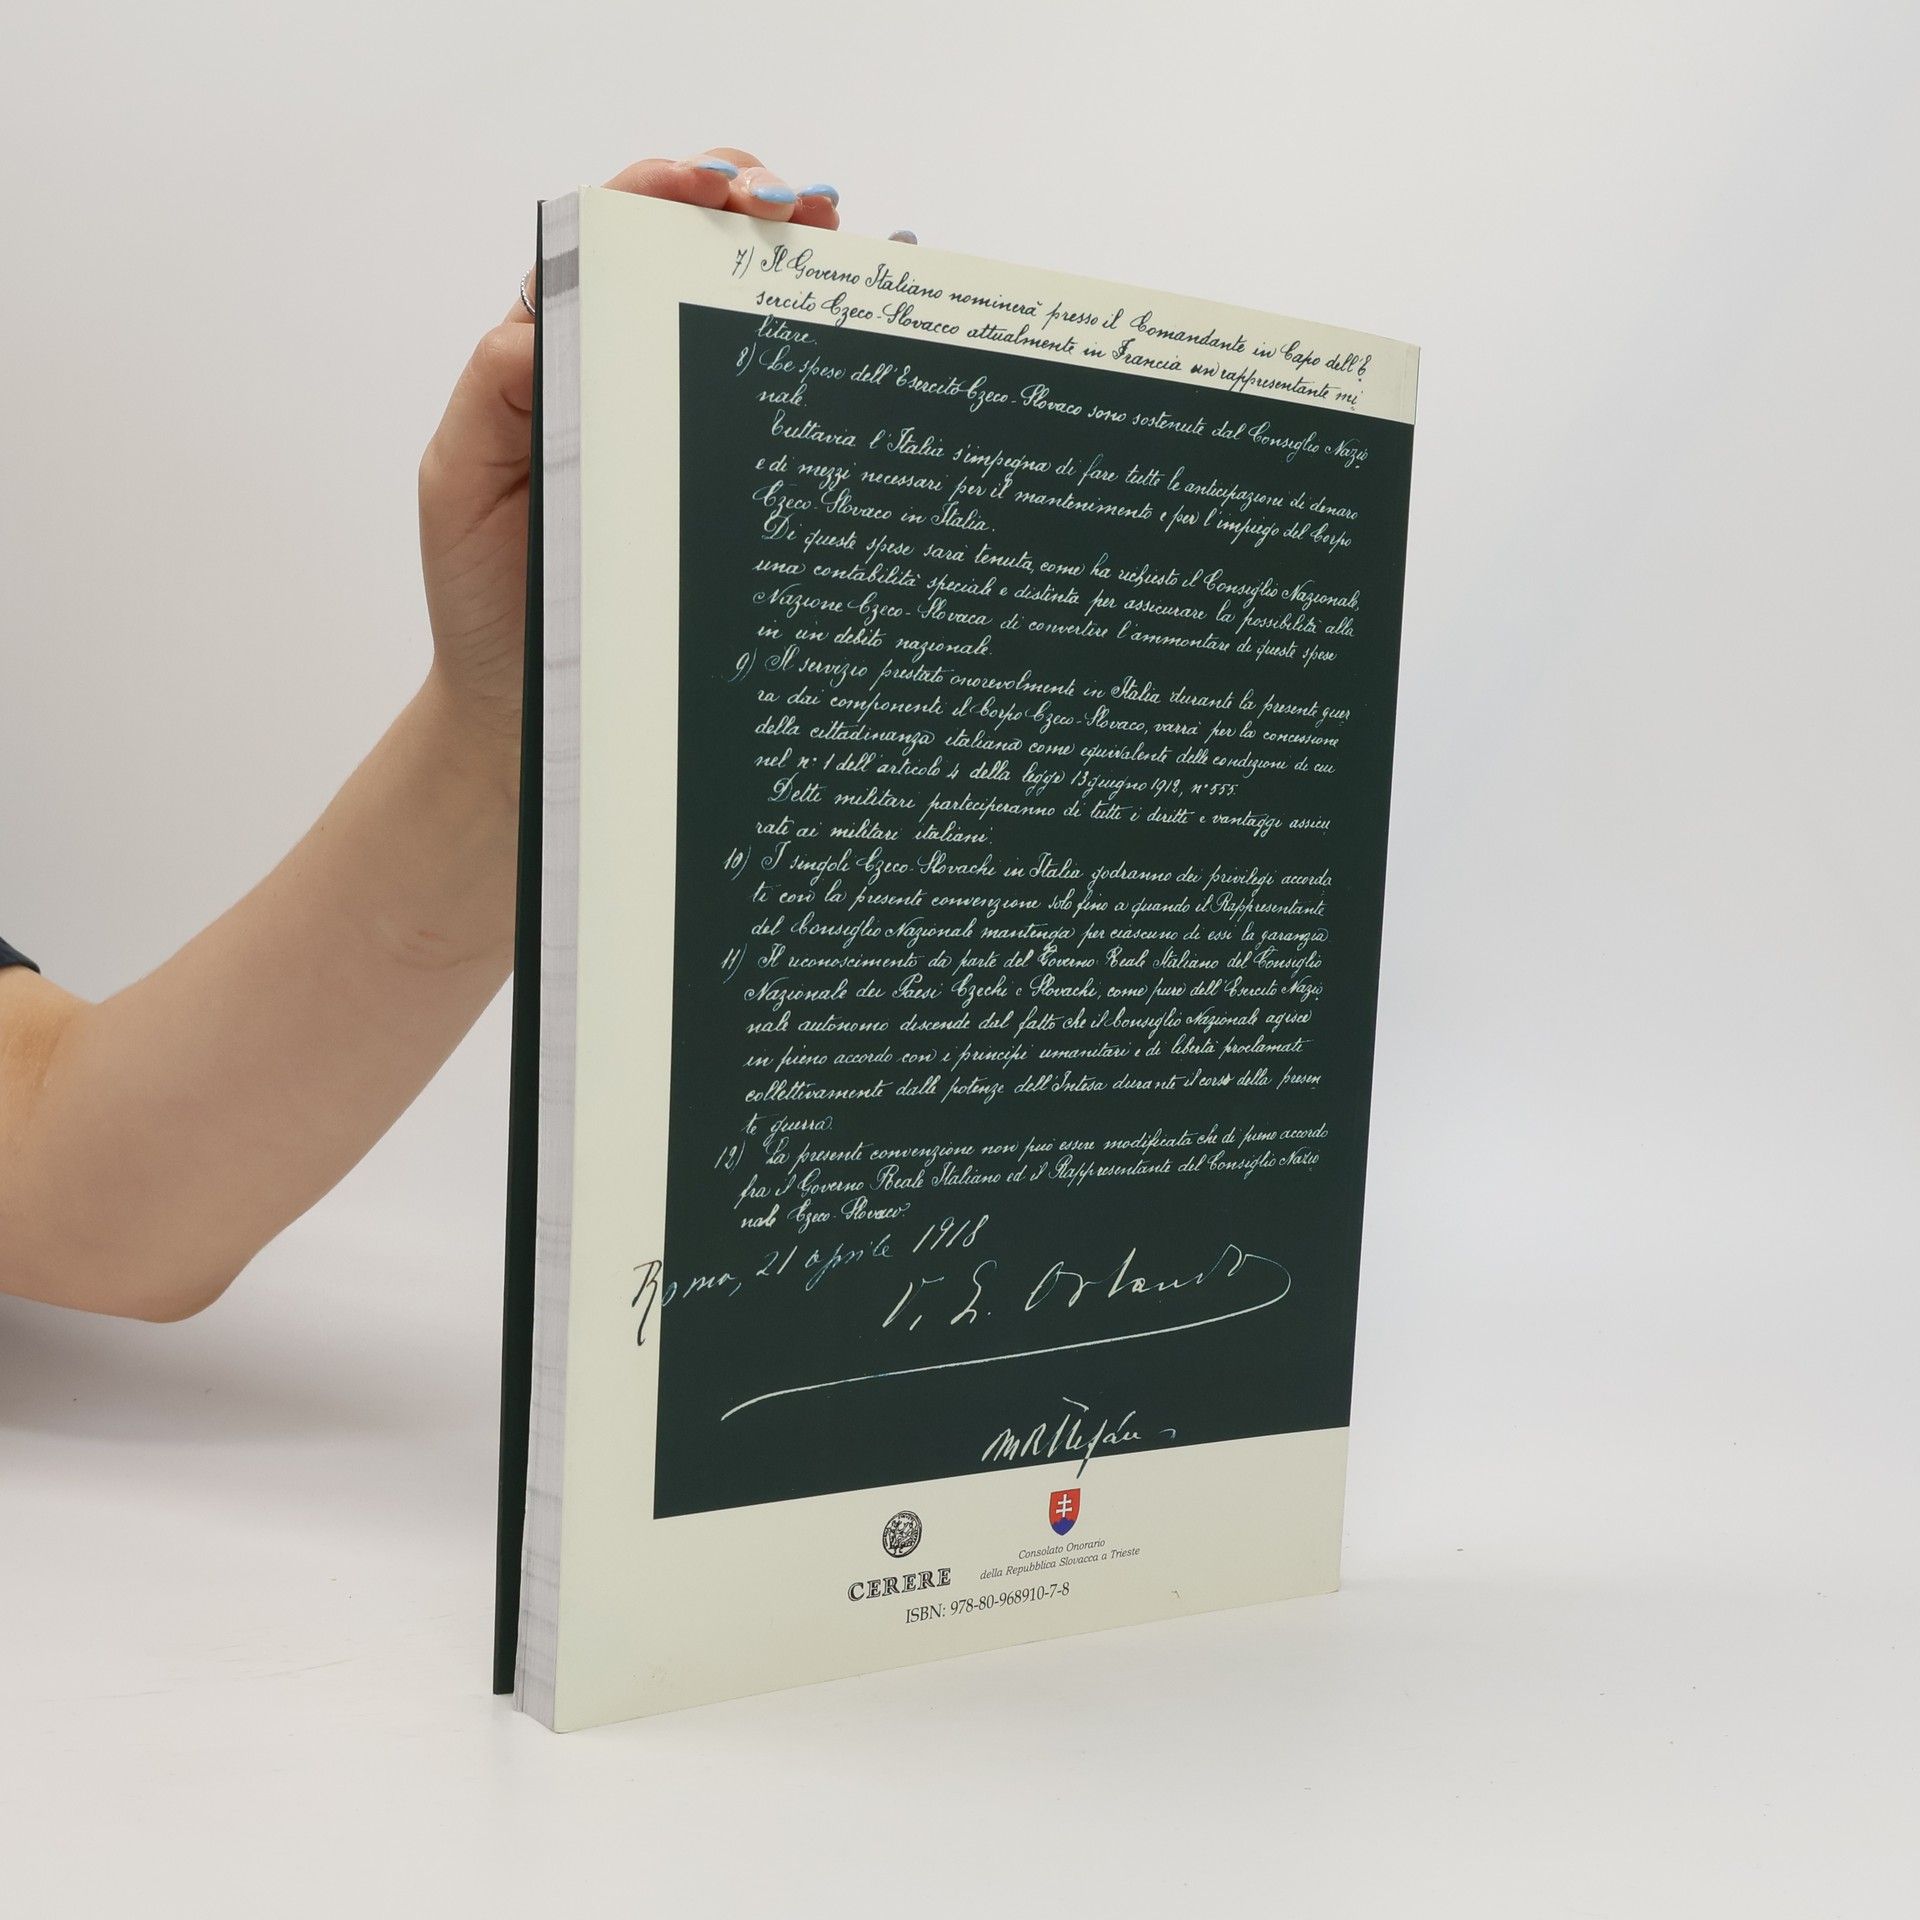 7) Il Governo Italiano nominerà presso il Comandante in Capo dell'E
sercito Czeco-Slovacco attualmente in Francia un rappresentante mi
litare.
8) Le spese dell'Esercito Czeco-Slovaco sono sostenute dal Consiglio Nazio
nale.
Tuttavia l'Italia s'impegna di fare tutte le anticipazioni di denaro
e di mezzi necessari per il mantenimento e per l'impiego del Corpo
Czeco-Slovaco in Italia.
Di queste spese sarà tenuta, come ha richiesto il Consiglio Nazionale,
una contabilità speciale e distinta per assicurare la possibilità alla
Nazione Czeco-Slovaca di convertire l'ammontare di queste spese
in un debito nazionale.
9) Il servizio prestato onorevolmente in Italia durante la presente guer
ra dai componenti il Corpo Czeco-Slovaco, varrà per la concessione
della cittadinanza italiana come equivalente delle condizioni di cui
nel n° 1 dell'articolo 4 della legge 13 giugno 1912, n° 555.
Detti militari parteciperanno di tutti i diritti e vantaggi assicu
rati ai militari italiani.
10) I singoli Czeco-Slovachi in Italia godranno dei privilegi accorda
ti con la presente convenzione solo fino a quando il Rappresentante
del Consiglio Nazionale mantenga per ciascuno di essi la garanzia.
11) Il riconoscimento da parte del Governo Reale Italiano del Consiglio
Nazionale dei Paesi Czechi e Slovachi, come pure dell'Esercito Nazio
nale autonomo discende dal fatto che il Consiglio Nazionale agisce
in pieno accordo con i principi umanitari e di libertà proclamati
collettivamente dalle potenze dell'Intesa durante il corso della presen
te guerra.
12) La presente convenzione non può essere modificata che di pieno accordo
fra il Governo Reale Italiano ed il Rappresentante del Consiglio Nazio
nale Czeco-Slovaco.
Roma, 21 aprile 1918
V. E. Orlando
MRStefán
CERERE
Consolato Onorario
della Repubblica Slovacca a Trieste
ISBN: 978-80-968910-7-8